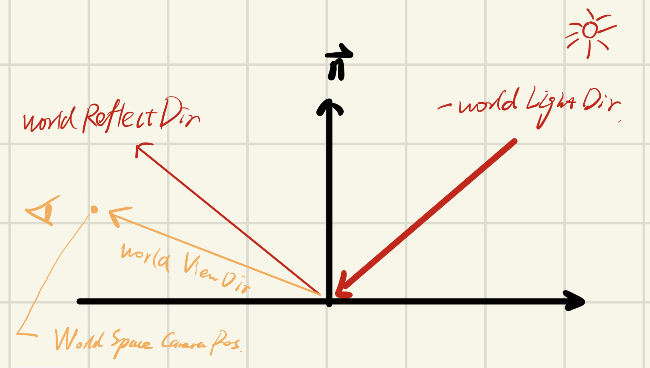 n
-world Light Dir.
world Reflect Dir
world View Dir
World Space Camera Pos.